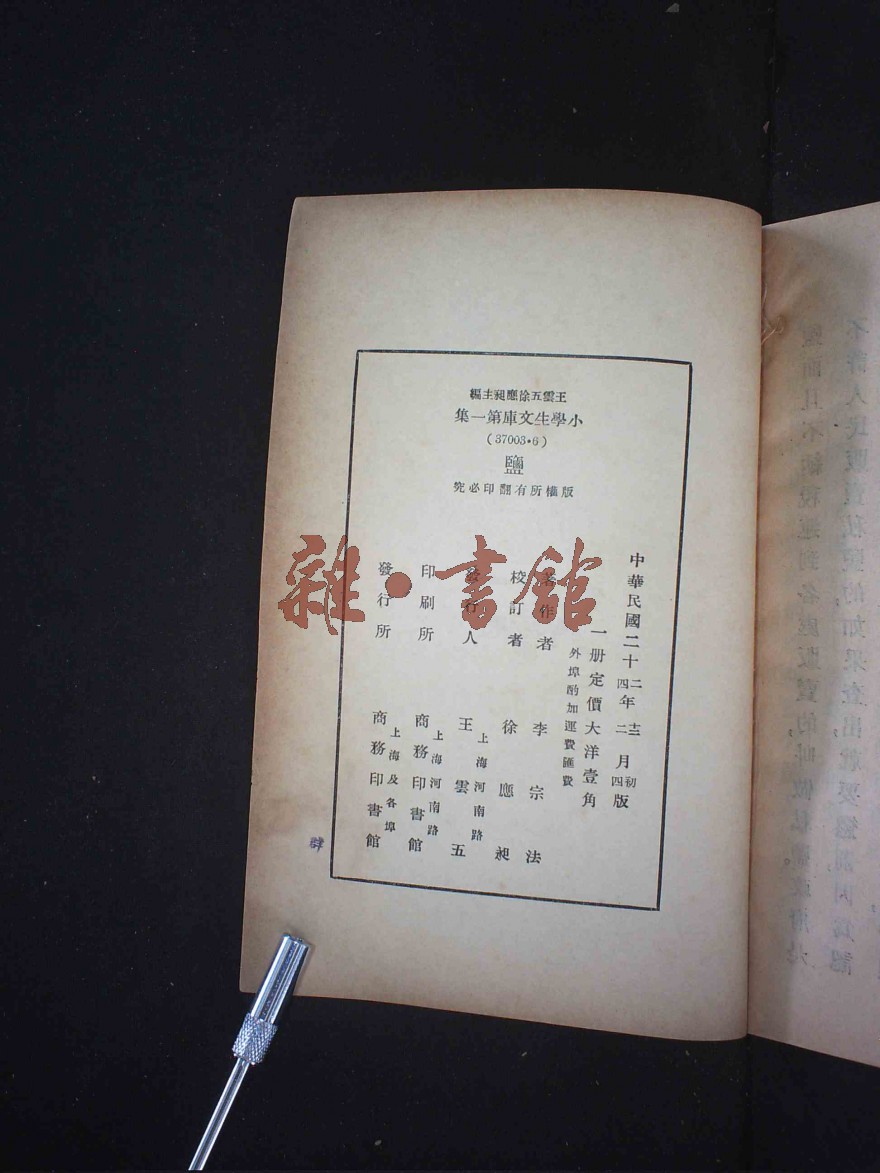 編主昶應徐五雲王
集一第庫文生學小
(37003·6)
鹽
究必印翻有所權版
中華民國二十二年十二月初版
四 二 四
一册定價大洋壹角
外埠酌加運費匯費
著作者 李宗法
校訂者 徐應昶
發行人 王雲五
上海河南路
印刷所 商務印書館
上海河南路
發行所 商務印書館
上海及各埠
雜·書館